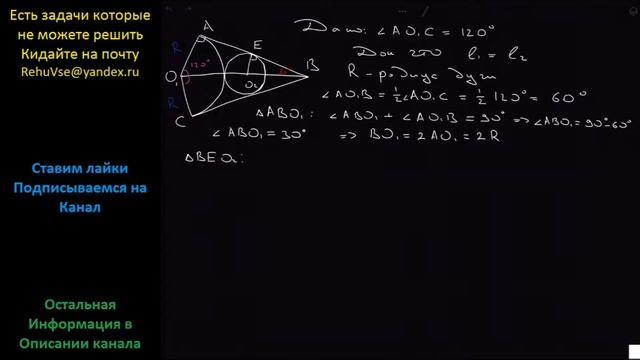 Есть задачи которые
не можете решить
Кидайте на почту
RehuVse@yandex.ru
Ставим лайки
Подписываемся на
Канал
Остальная
Информация в
Описании канала
A
R
E
120°
O₁
O₂
B
R
C
Дано: ∠AO₁C = 120°
Док что l₁ = l₂
R - радиус дуги
∠AO₁B = ½∠AO₁C = ½ 120° = 60°
△ABO₁: ∠ABO₁ + ∠AO₁B = 90° ⇒ ∠ABO₁ = 90°-60°
∠ABO₁ = 30° ⇒ BO₁ = 2AO₁ = 2R
△BEO₂: